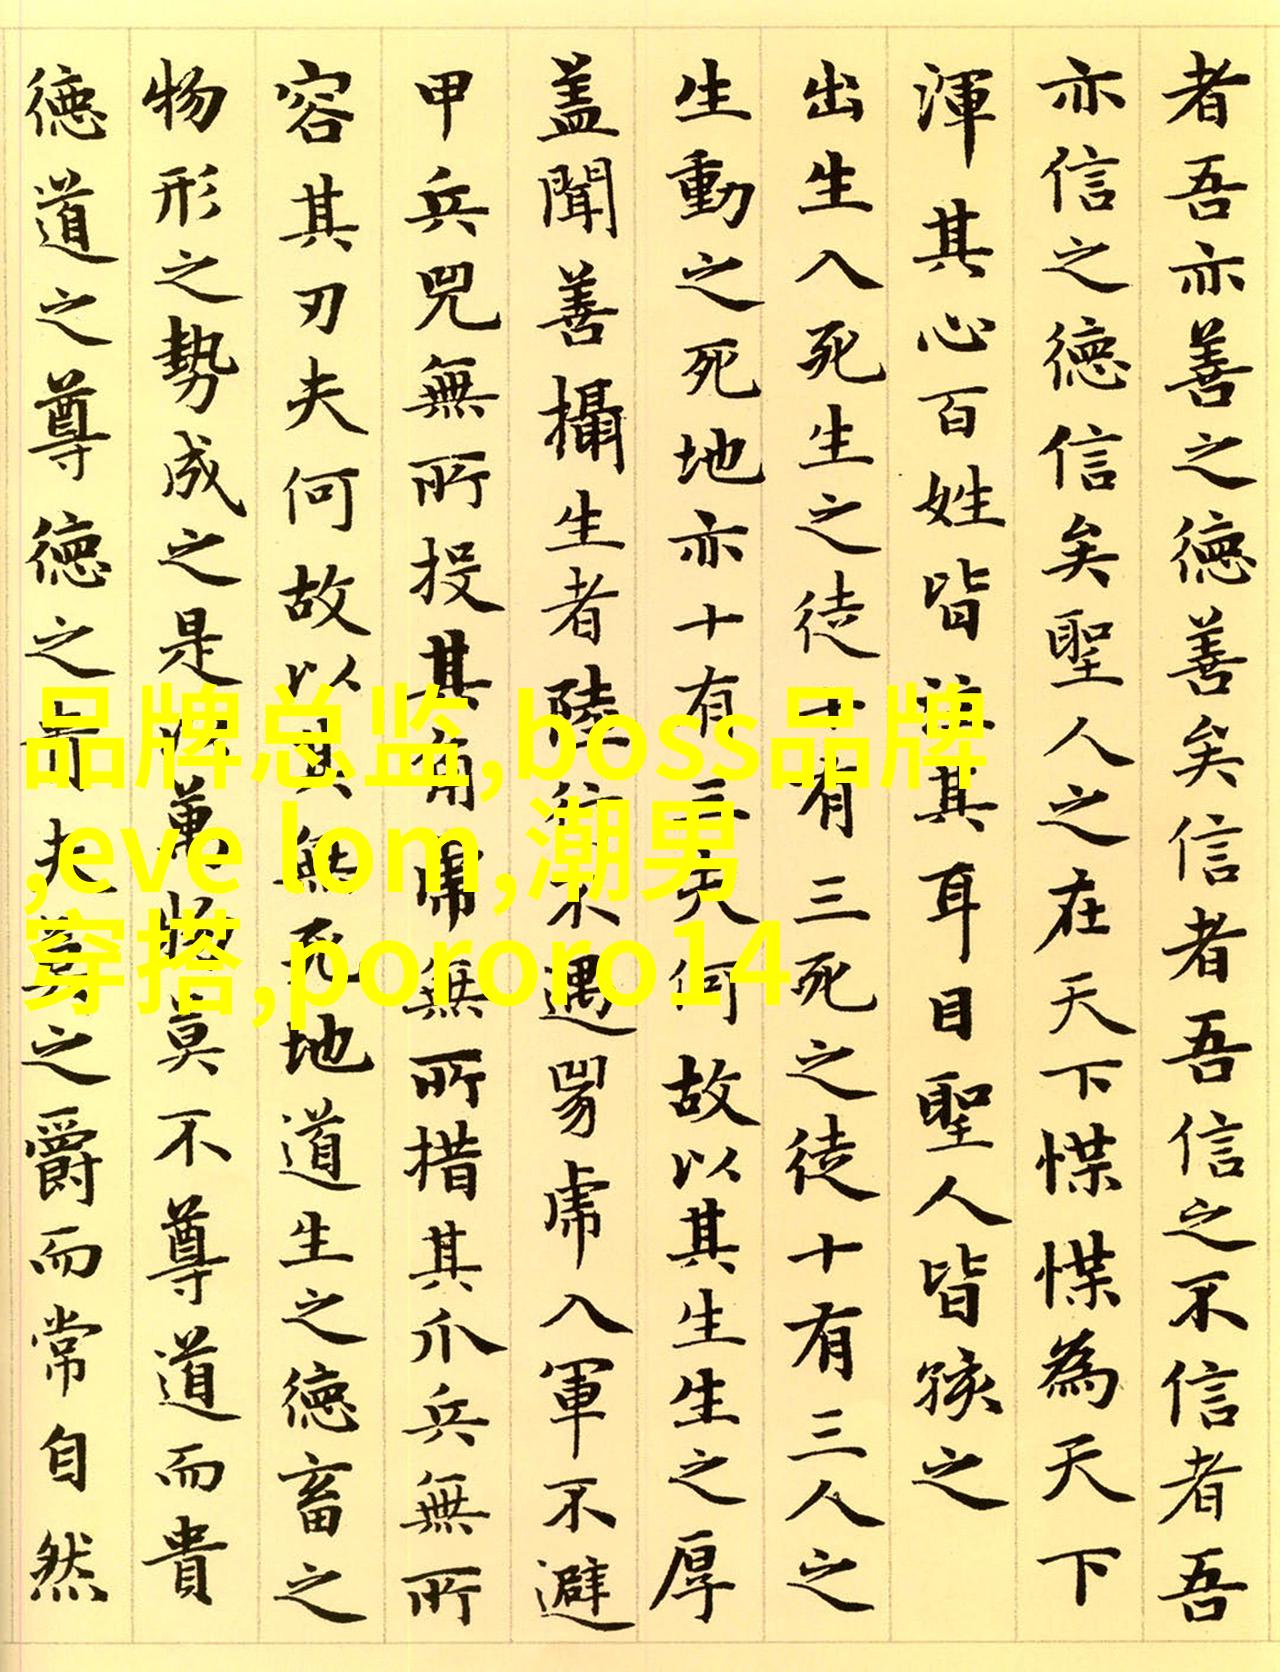 者吾亦善之德善矣信者吾信之不信者吾
亦信之德信矣聖人之在天下惵惵為天下
渾其心百姓皆注其耳目聖人皆孩之
出生入死生之徒十有三死之徒十有三人之
生動之死地亦十有三夫何故以其生生之厚
盖聞善攝生者陸行不遇兕虎入軍不避
甲兵兕無所投其角虎無所措其爪兵無所
容其刃夫何故以其無死地道生之德畜之
物形之勢成之是以萬物莫不尊道而貴
德道之尊德之夫莫之爵而常自然
品牌总监,boss品牌
,eve lom,潮男
穿搭,pororo14